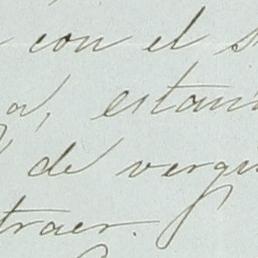 con el s
a, estan
de verg
traer.